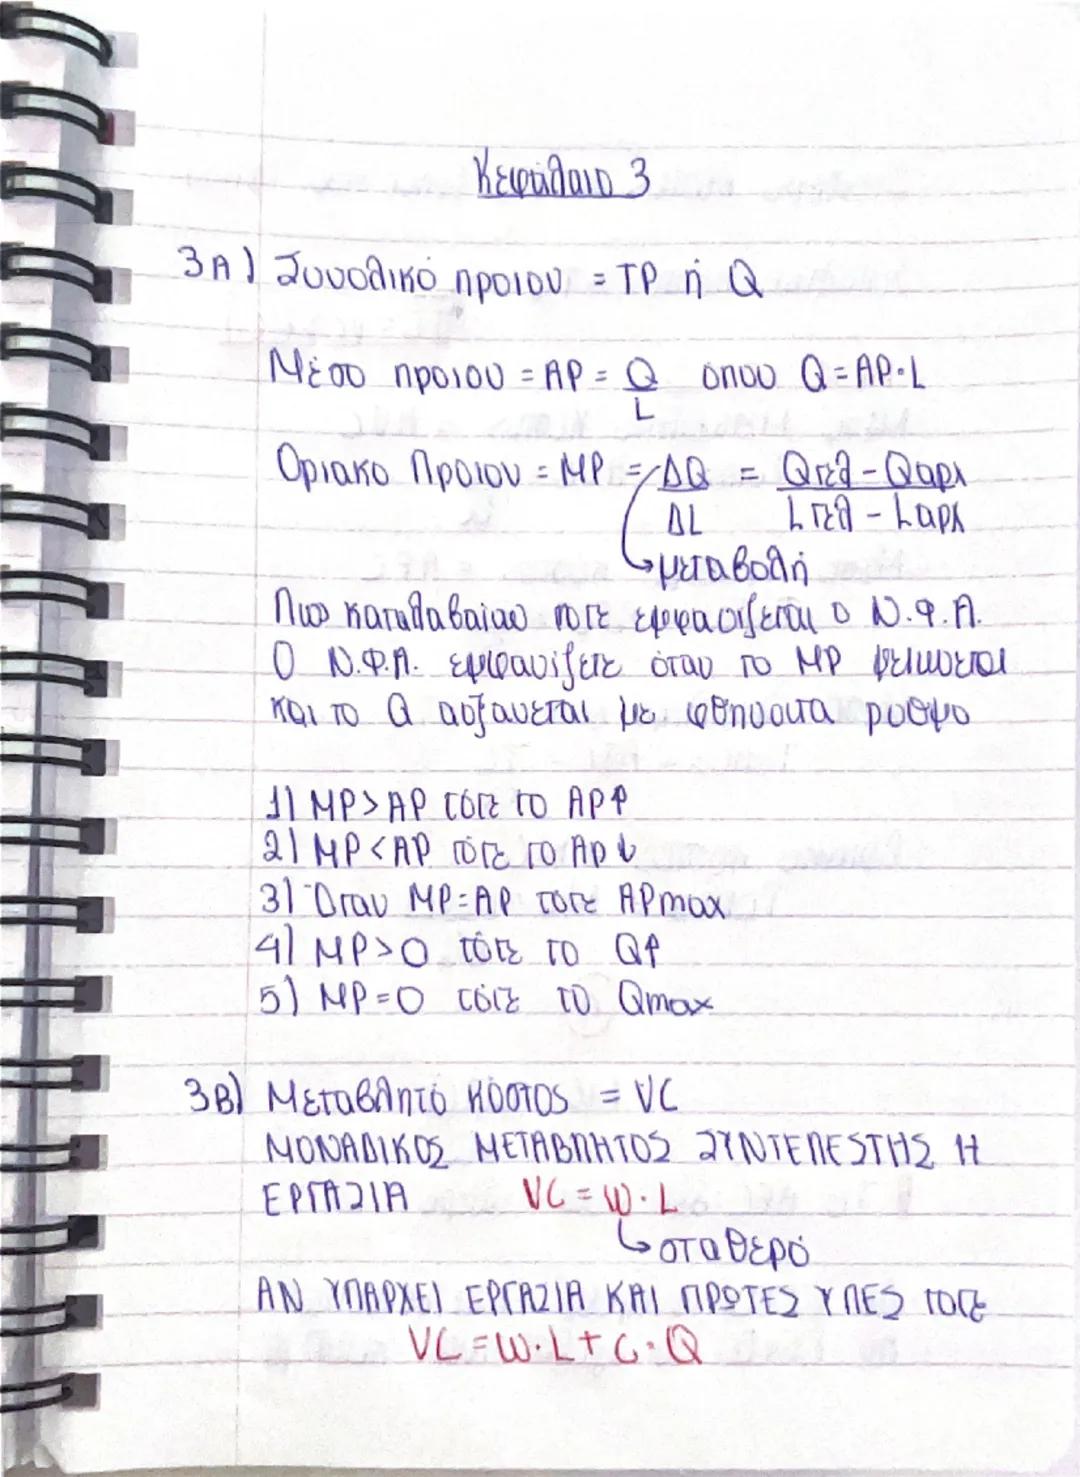 Κεφάλαιο 3
3Α) Συνολικό προιον = TP ή Q
Μέσο προιον = AP = Q/L οπου Q = AP·L
Οριακο Προιον = MP = ΔQ/ΔL = Qτελ - Qαρχ / Lτελ - Lαρχ
μεταβολή
Πως καταλαβαίνω ποτε εμφανιζεται ο Ν.Φ.Α.
Ο Ν.Φ.Α. εμφανιζετε όταν το MP μειωνεται
και το Q αυξανεται με φθηνοντα ρυθμο
1) MP>AP τότε το AP↑
2) MP<AP τότε το AP↓
3) Όταν MP=AP τοτε APmax
4) MP>0 τότε το Q↑
5) MP=0 τότε το Qmax
3Β) Μεταβλητό Κόστος = VC
ΜΟΝΑΔΙΚΟΣ ΜΕΤΑΒΛΗΤΟΣ ΣΥΝΤΕΛΕΣΤΗΣ Η
ΕΡΓΑΣΙΑ VC = W·L
σταθερό
ΑΝ ΥΠΑΡΧΕΙ ΕΡΓΑΣΙΑ ΚΑΙ ΠΡΩΤΕΣ ΥΛΕΣ τοτε
VC = W·L + C·Q